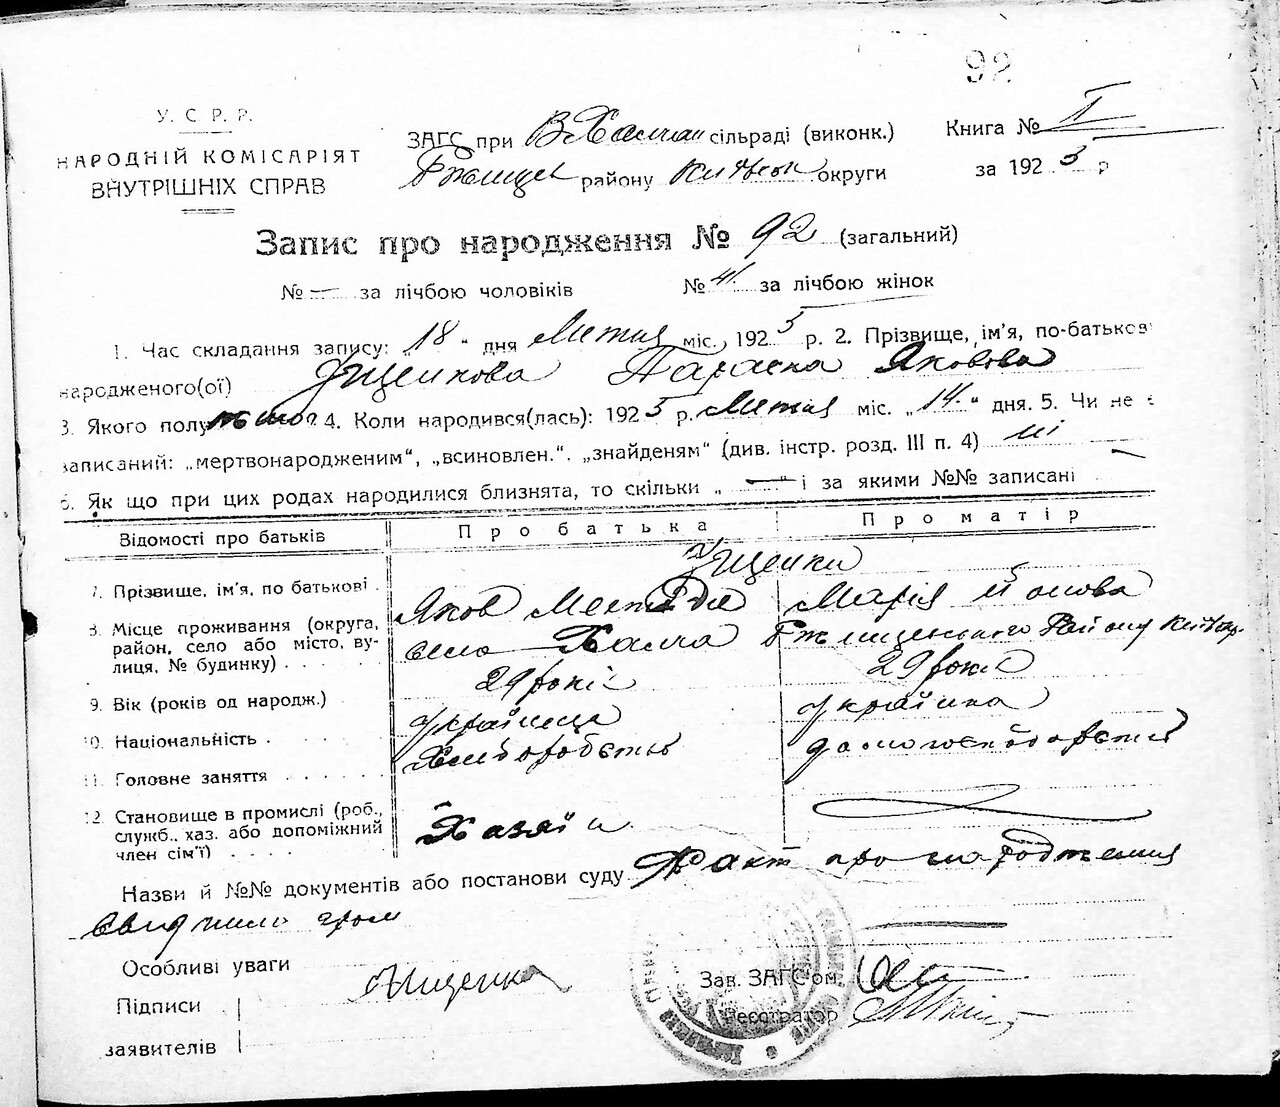 92
У. С. Р. Р.
НАРОДНІЙ КОМІСАРІЯТ
ВНУТРІШНІХ СПРАВ
ЗАГС при В Халчан сільраді (виконк.)
Ржищев району Київськ округи
Книга № I
за 1925 р
Запис про народження № 92 (загальний)
№ — за лічбою чоловіків № 41 за лічбою жінок
1. Час складання запису: „18“ дня Лютия міс. 1925 р. 2. Прізвище, ім'я, по-батькові
народженого(ої) Параска Яковова
3. Якого полу 4. Коли народився(лась): 1925 р. Лютия міс. „14“ дня. 5. Чи не є
записаний: „мертвонародженим“, „всиновлен.“. „знайденям“ (див. інстр. розд. III п. 4) ні
6. Як що при цих родах народилися близнята, то скільки „—“ і за якими №№ записані —
Відомості про батьків Про батька Про матір
7. Прізвище, ім'я, по батькові Яков Марія Йонова
8. Місце проживання (округа,
район, село або місто, ву-
лиця, № будинку) село Халча Ржищенського Району
9. Вік (років од народж.) 29 років 29 років
10. Національність українець українка
11. Головне заняття Хліборобство домогосподарство
12. Становище в промислі (роб.,
служб., хаз. або допоміжний
член сім'ї) Хазяїн
Назви й №№ документів або постанови суду Факт про народження
свідчило
Особливі уваги
Підписи
заявителів
Зав. ЗАГС'ом
Реєстратор